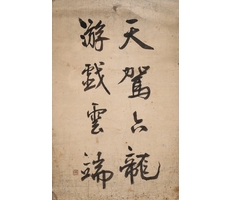 天駕六龍
游戲雲端